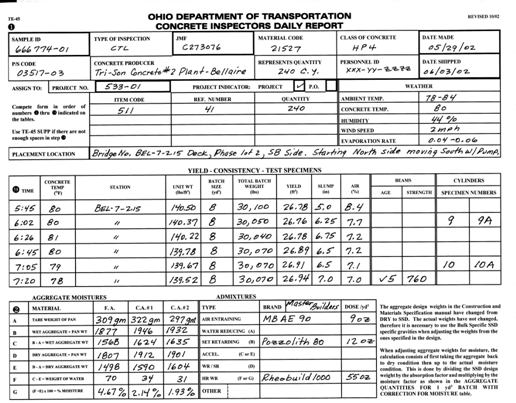 TE-45 OHIO DEPARTMENT OF TRANSPORTATION REVISED 10/02
CONCRETE INSPECTORS DAILY REPORT
SAMPLE ID TYPE OF INSPECTION JMF MATERIAL CODE CLASS OF CONCRETE DATE MADE
666774-01 CTL C273076 21527 HP4 05/29/02
P/S CODE CONCRETE PRODUCER REPRESENTS QUANTITY PERSONNEL ID DATE SHIPPED
03517-03 Tri-Son Concrete #2 Plant-Bellaire 240 C.Y. XXX-YY-ZZZZ 06/03/02
ASSIGN TO: PROJECT NO. 533-01 PROJECT INDICATOR: PROJECT ✓ P.O. WEATHER
Compute form in order of numbers 1 thru indicated on the tables. ITEM CODE REF. NUMBER QUANTITY AMBIENT TEMP. 78-84
511 41 240 CONCRETE TEMP. 80
HUMIDITY 44%
Use TE-45 SUPP if there are not enough spaces in step WIND SPEED 2mph
EVAPORATION RATE 0.04-0.06
PLACEMENT LOCATION Bridge No. BEL-7-215 Deck, Phase 1 of 2, SB Side. Starting North side moving South w/Pump.
YIELD - CONSISTENCY - TEST SPECIMENS
TIME CONCRETE TEMP (°F) STATION UNIT WT (lbs/ft³) BATCH SIZE (yd³) BATCH WT (lbs) YIELD (ft³) SLUMP (in) AIR (%) BEAMS CYLINDERS
AGE STRENGTH SPECIMEN NUMBERS
5:45 80 BEL-7-215 140.50 8 30,100 26.78 5.0 8.4
6:02 80 " 140.37 8 30,050 26.76 6.25 7.7 9 9A
6:26 81 " 140.22 8 30,040 26.78 6.75 7.2
6:45 80 " 139.78 8 30,070 26.89 6.5 7.2
7:05 79 " 139.67 8 30,070 26.91 6.5 7.1 10 10A
7:20 78 " 139.52 8 30,070 26.94 7.0 7.0 ✓5 760
AGGREGATE MOISTURES ADMIXTURES
MATERIAL F.A. C.A.#1 C.A.#2 TYPE BRAND Master Builders DOSE /yd³
A TARE WEIGHT OF PAN 309 gm 322 gm 297 gm AIR ENTRAINING MB AE 90 9 oz
B WET AGGREGATE + PAN WT 1877 1946 1932 WATER REDUCING (A)
C B - A = WET AGGREGATE WT 1568 1624 1635 SET RETARDING (B) Pozzolith 80 12 oz
D DRY AGGREGATE + PAN WT 1807 1912 1901 ACCEL. (C or E)
E D - A = DRY AGGREGATE WT 1498 1590 1604 WR/SR (D)
F C - E = WEIGHT OF WATER 70 34 31 HR WR (F or G) Rheobuild 1000 55 oz
G (F÷E) x 100 = % MOISTURE 4.67% 2.14% 1.93% OTHER
The aggregate design weights in the Construction and
Materials Specification manual have changed from
DRY to SSD. The actual weights have not changed,
therefore it is necessary to use the Bulk Specific SSD
specific gravities when adjusting the weights from the
ones specified in the design.
When adjusting aggregate weights for moisture, the
calculation consists of first taking the aggregate back
to dry condition then up to the actual moisture
condition. This is done by dividing the SSD design
weight by the absorption factor and multiplying by the
moisture factor as shown in the AGGREGATE
QUANTITIES FOR 1 yd³ BATCH WITH
CORRECTION FOR MOISTURE table.